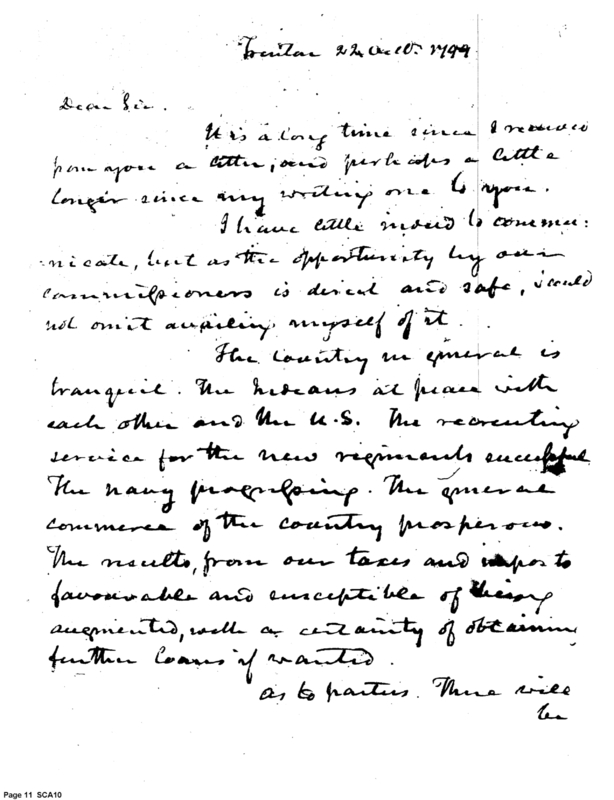 Trenton 22 Octo. 1799
Dear Sir.
It is a long time since I received
from you a letter, and perhaps a little
longer since my writing one to you.
I have little indeed to commu:
nicate, but as the opportunity by our
commissioners is direct and safe, I could
not omit availing myself of it.
The Country in general is
tranquil. The Indians at peace with
each other and the U.S. The recruiting
service for the new regiments successful
The navy progressing. The general
commerce of the country prosperous.
The results, from our taxes and imposts
favourable and susceptible of being
augmented, with a certainty of obtaining
further loans if wanted.
As to parties. There will
be
Page 11 SCA10